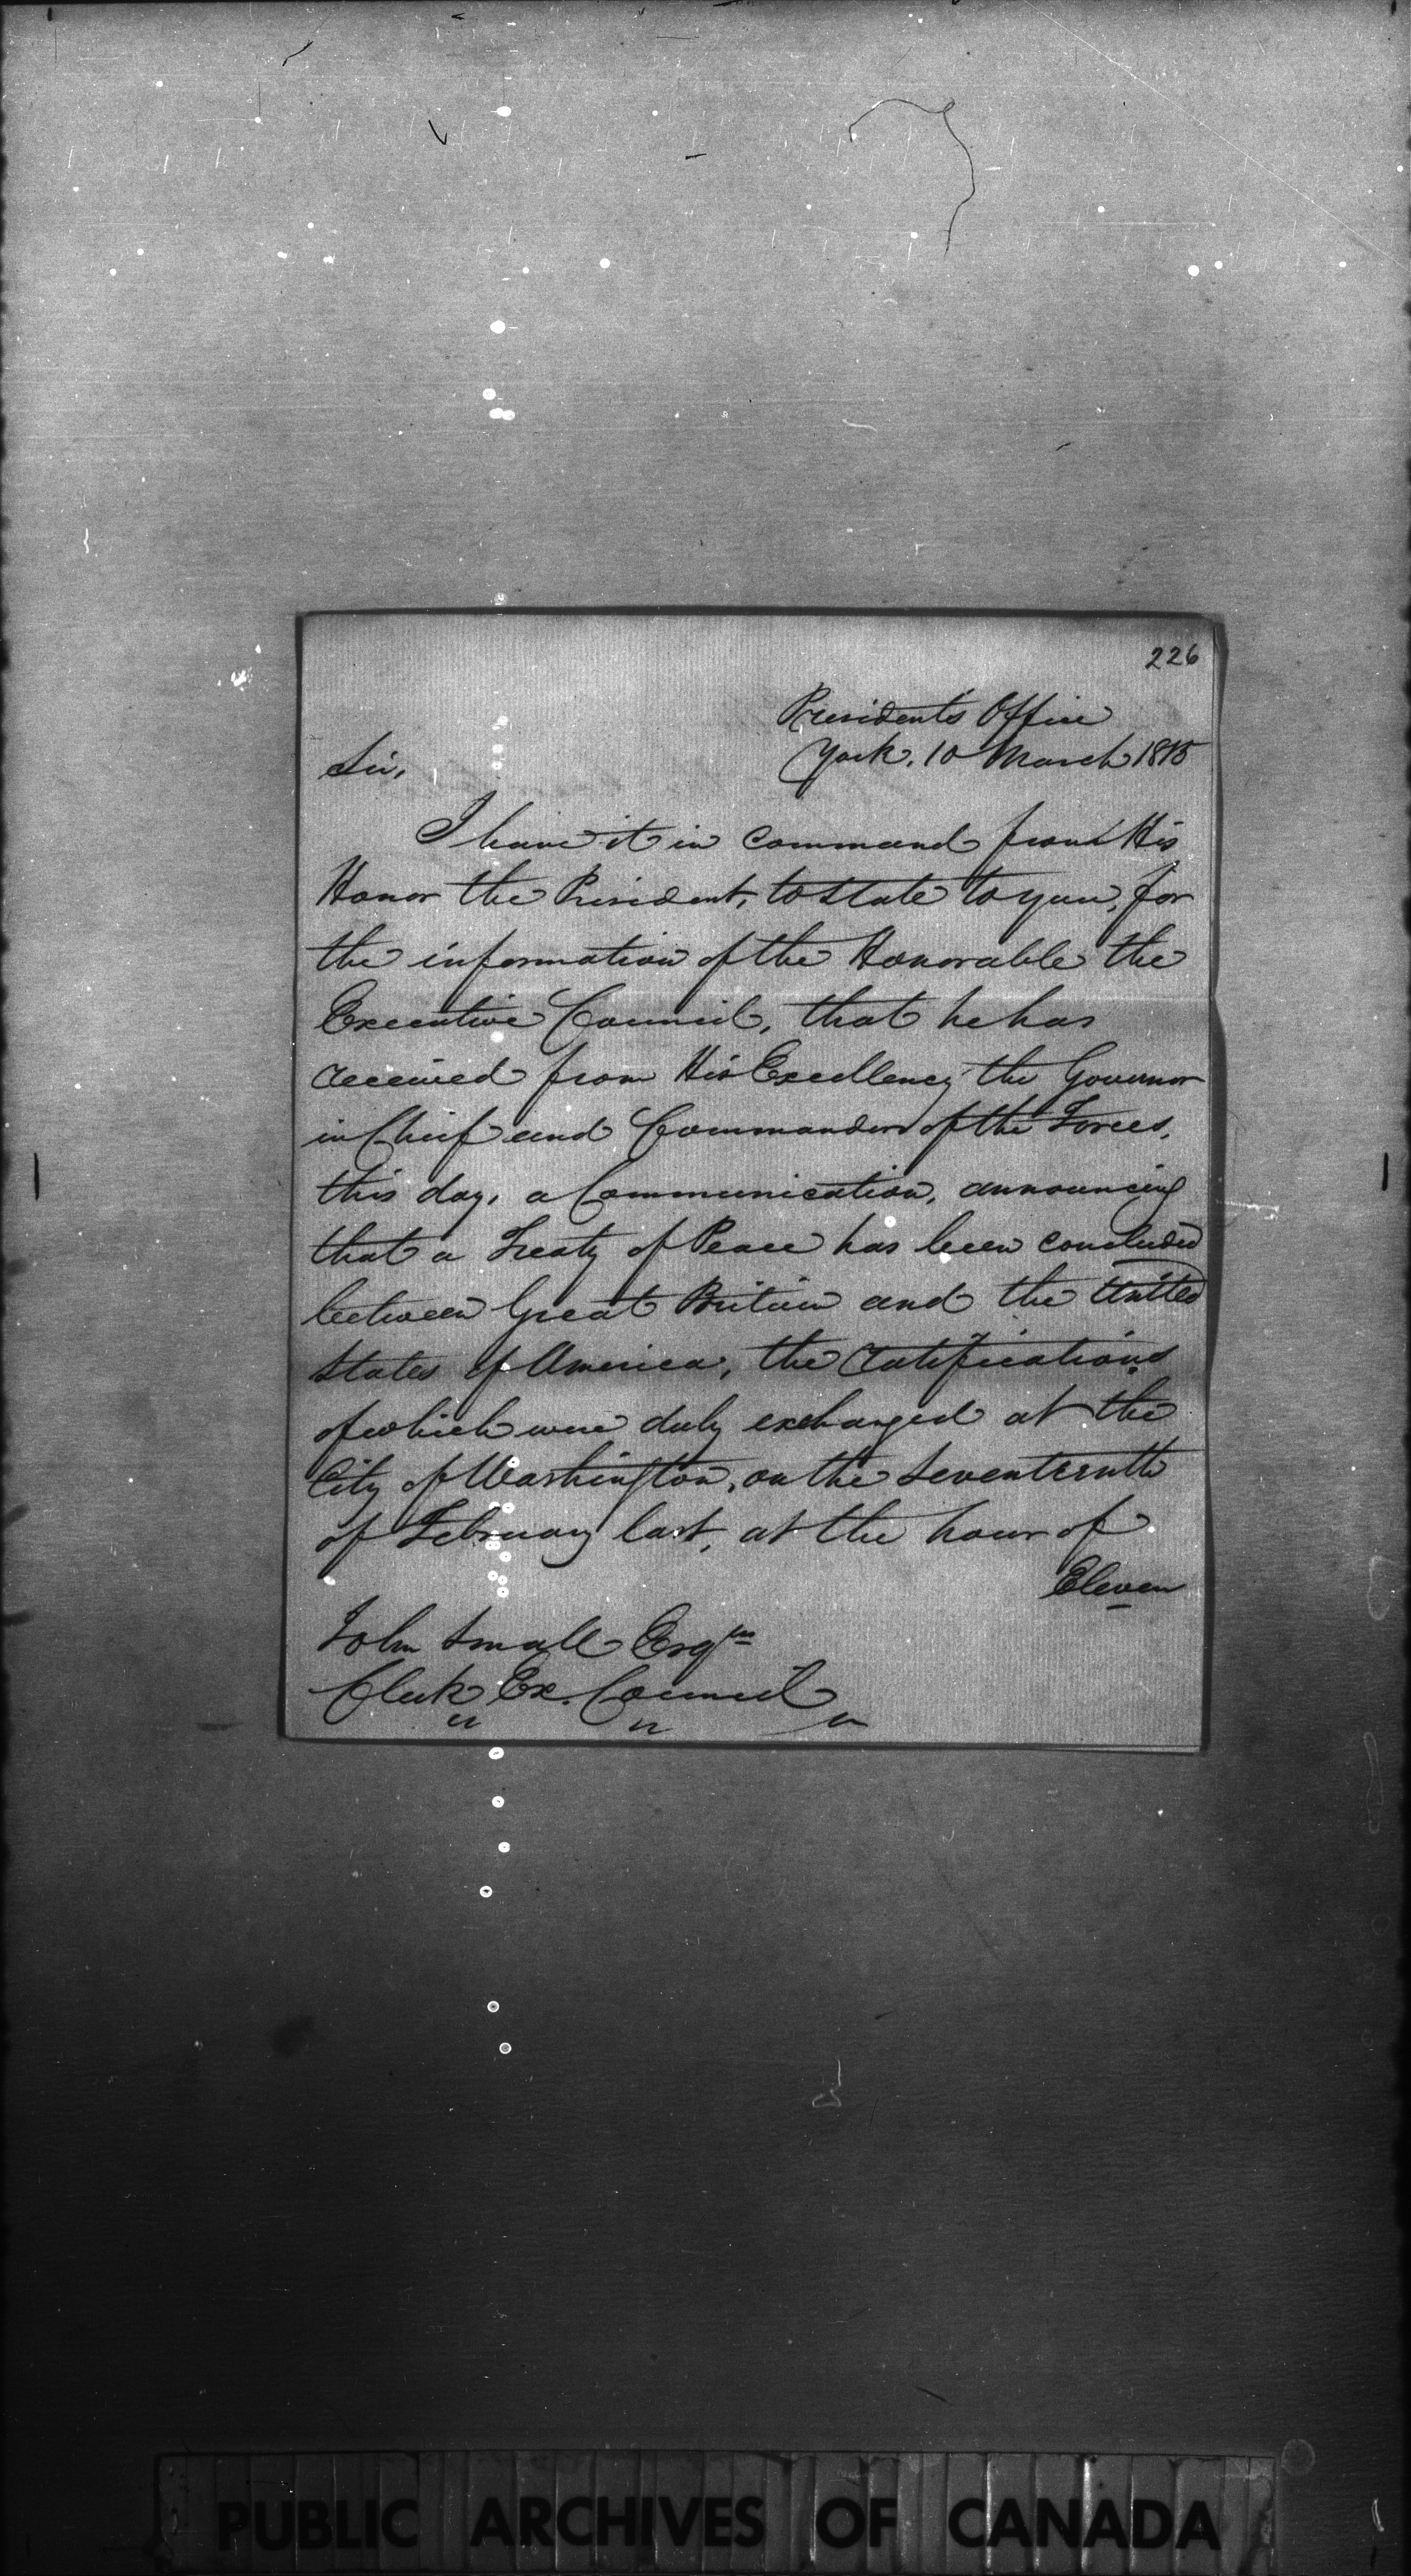 226
Presidents Office
York. 10 March 1815
Sir,
I have it in command from His
Honor the President, to state to you, for
the information of the Honorable the
Executive Council, that he has
received from His Excellency the Governor
in Chief and Commander of the Forces,
this day, a Communication, announcing
that a Treaty of Peace has been concluded
between Great Britain and the United
States of America, the ratifications
of which were duly exchanged at the
City of Washington, on the Seventeenth
of February last, at the hour of
Eleven
John Small Esq
Clerk Ex. Council
PUBLIC ARCHIVES OF CANADA